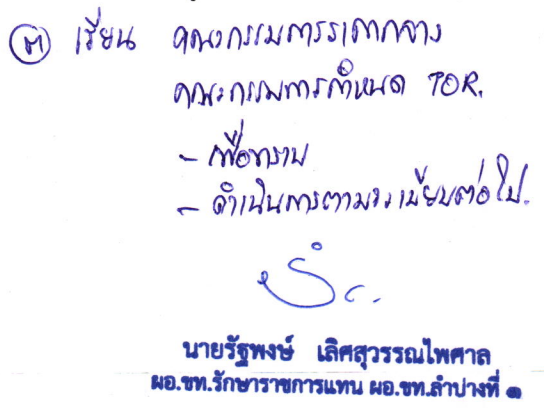 ๓ เรียน คณะกรรมการราคากลาง
คณะกรรมการกำหนด TOR.
- เพื่อทราบ
- ดำเนินการตามระเบียบต่อไป.
นายรัฐพงษ์ เลิศสุวรรณไพศาล
ผอ.ขท.รักษาราชการแทน ผอ.ขท.ลำปางที่ ๑